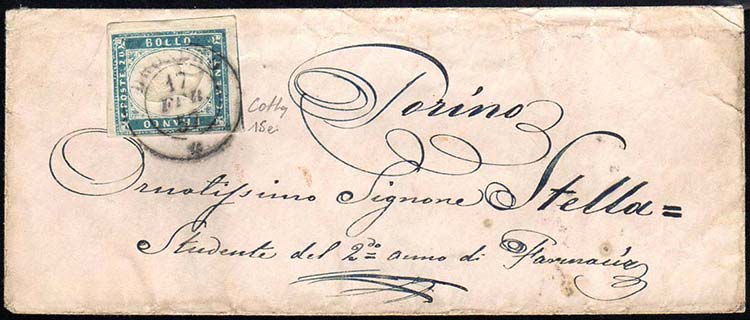 BOLLO
C. POSTE 20
C. VENTI
FRANCO
17
Torino
Cotty
15e
Ornatissimo Signore Stella=
Studente del 2do anno di Farmacia